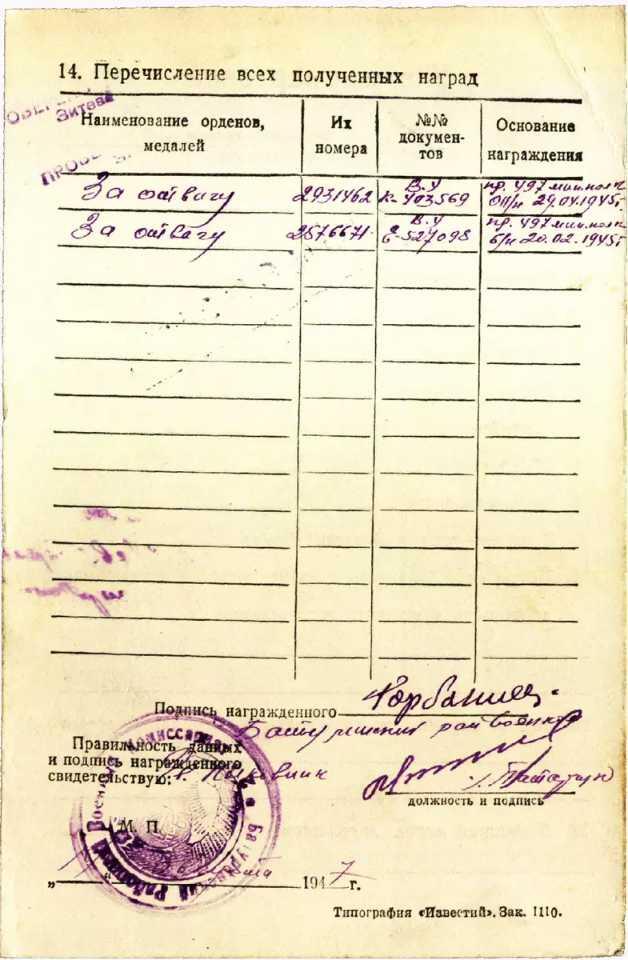 14. Перечисление всех полученных наград
Наименование орденов, медалей
Их номера
№№ документов
Основание награждения
За отвагу 2931462 В.У К-403569 пр. 497 мин.полк 011/н 29.04.1945г
За отвагу 2576671 В.У Е-527098 пр. 497 мин.полк б/н 20.02.1945г
Подпись награжденного
Батуринский райвоенком
Правильность данных
и подпись награжденного
свидетельствую:
должность и подпись
М. П.
1947 г.
Типография «Известий». Зак. 1110.